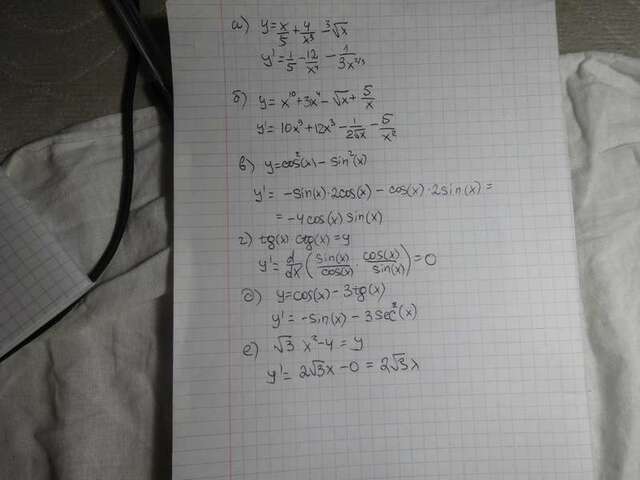 а) y = x/5 + 4/x³ - ³√x
y' = 1/5 - 12/x⁴ - 1/3x^2/3
б) y = x¹⁰ + 3x⁴ - √x + 5/x
y' = 10x⁹ + 12x³ - 1/2√x - 5/x²
в) y = cos²(x) - sin²(x)
y' = -sin(x)·2cos(x) - cos(x)·2sin(x) =
= -4cos(x) sin(x)
г) tg(x) ctg(x) = y
y' = d/dx (sin(x)/cos(x) cos(x)/sin(x)) = 0
д) y = cos(x) - 3tg(x)
y' = -sin(x) - 3sec²(x)
е) √3 x² - 4 = y
y' = 2√3x - 0 = 2√3x